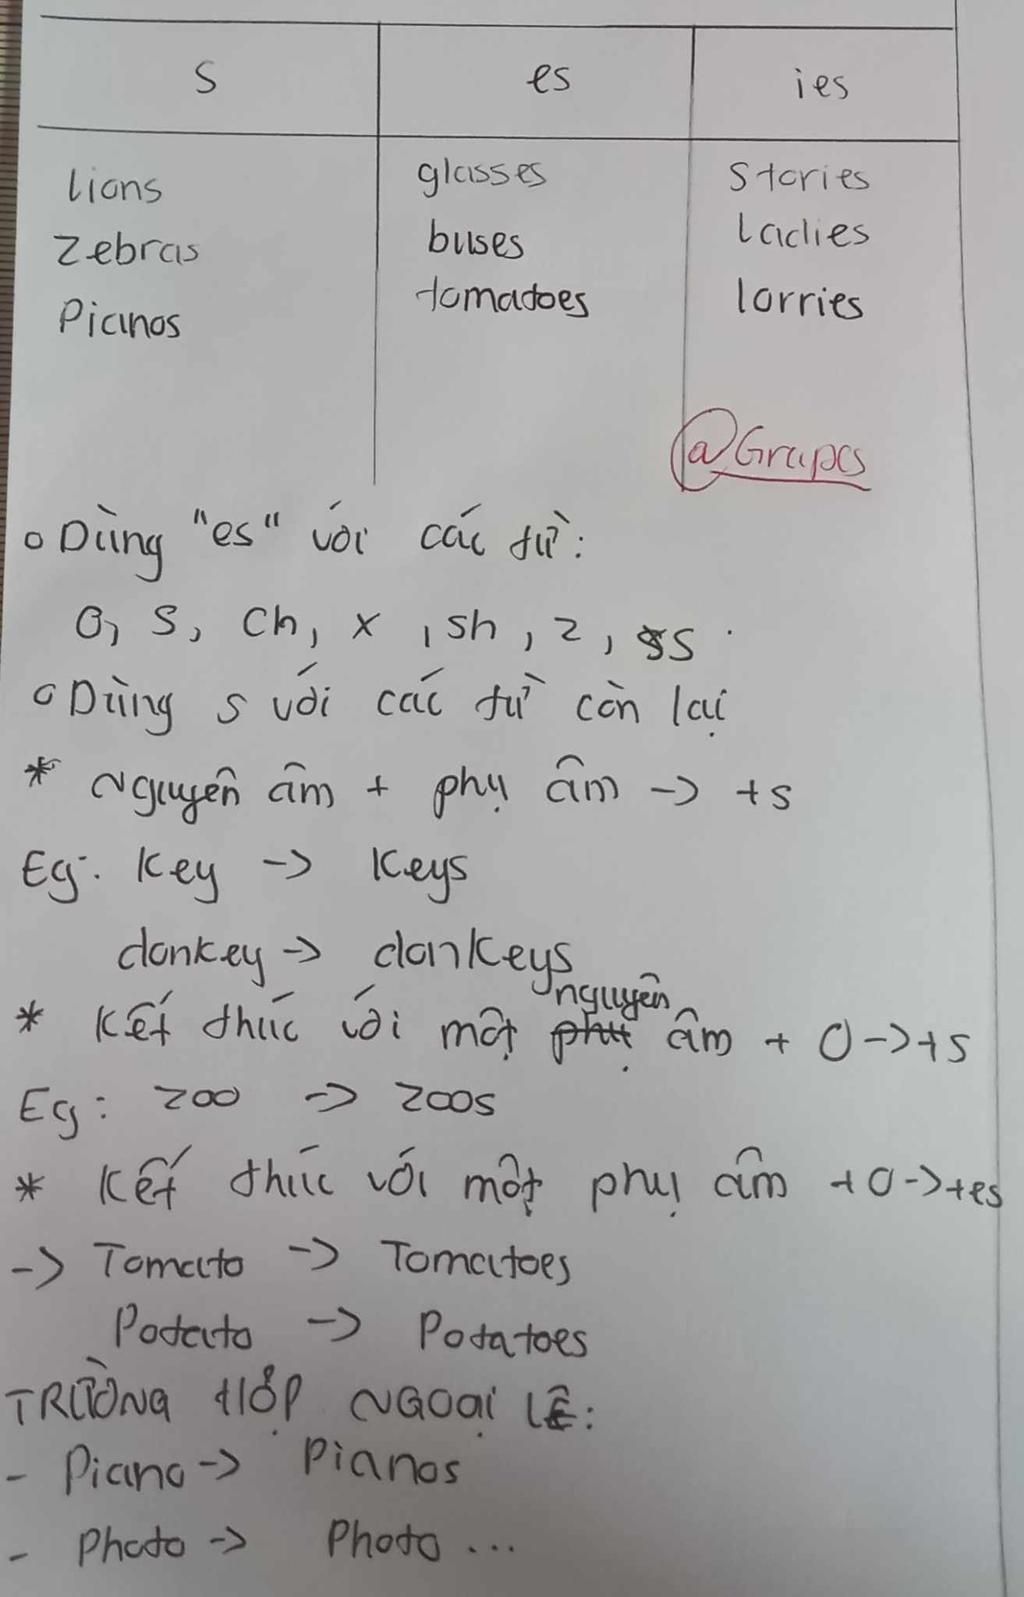 s es ies
lions glasses stories
Zebras buses ladies
Pianos tomatoes lorries
@Grapes
o Dùng "es" với các từ:
O, S, Ch, x, sh, z, ss
o Dùng s với các từ còn lại
* Nguyên âm + phụ âm -> +s
Eg: Key -> Keys
donkey -> donkeys
nguyên
* Kết thúc với một âm + O -> +s
Eg: zoo -> zoos
* Kết thúc với một phụ âm + O -> +es
-> Tomato -> Tomatoes
Potato -> Potatoes
TRƯỜNG HỢP NGOẠI LỆ:
- Piano -> Pianos
- Photo -> Photo ...